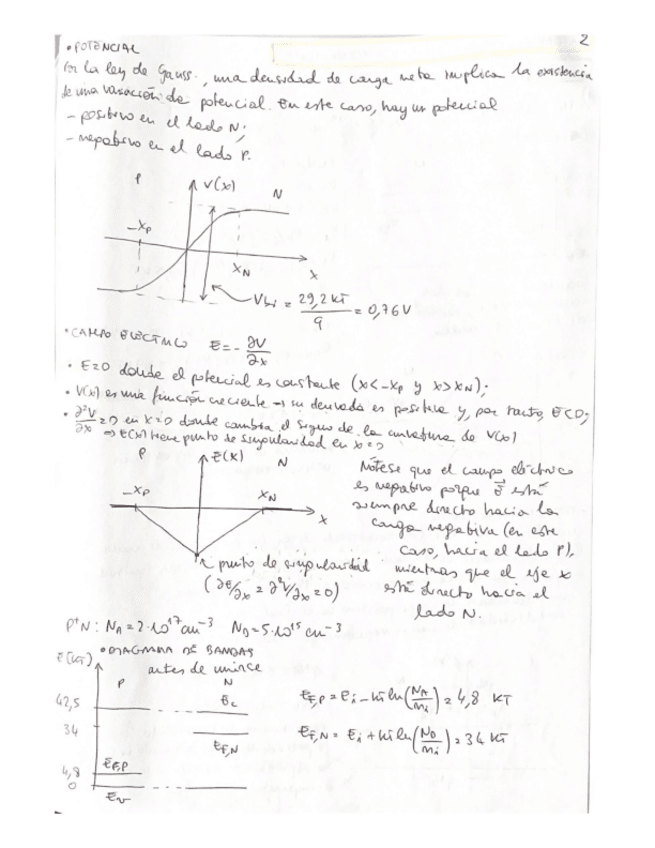 2
• POTENCIAL
Por la ley de Gauss, una densidad de carga neta implica la existencia
de una variación de potencial. En este caso, hay un potencial
- positivo en el lado N;
- negativo en el lado P.
P V(x) N
-Xp
XN X
Vbi = 29,2 KT / q = 0,76 V
• CAMPO ELÉCTRICO E = - ∂V/∂x
• E=0 donde el potencial es constante (x<-xp y x>xN);
• V(x) es una función creciente → su derivada es positiva y, por tanto, E<0;
• ∂²V/∂x = 0 en x=0 donde cambia el signo de la curvatura de V(x)
⇒ E(x) tiene punto de singularidad en x=0
P E(x) N
-Xp XN
X
Nótese que el campo eléctrico
es negativo porque E está
siempre directo hacia la
carga negativa (en este
caso, hacia el lado P),
mientras que el eje x
está directo hacia el
lado N.
punto de singularidad
(∂E/∂x = ∂²V/∂x = 0)
P⁺N: NA = 2·10¹⁷ cm⁻³ ND = 5·10¹⁵ cm⁻³
• DIAGRAMA DE BANDAS
antes de unirse
E (KT)
P N
42,5 Ec
34 EF,N
4,8 EF,P
0 Ev
EF,P = Ei - KT ln(NA/ni) = 4,8 KT
EF,N = Ei + KT ln(ND/ni) = 34 KT